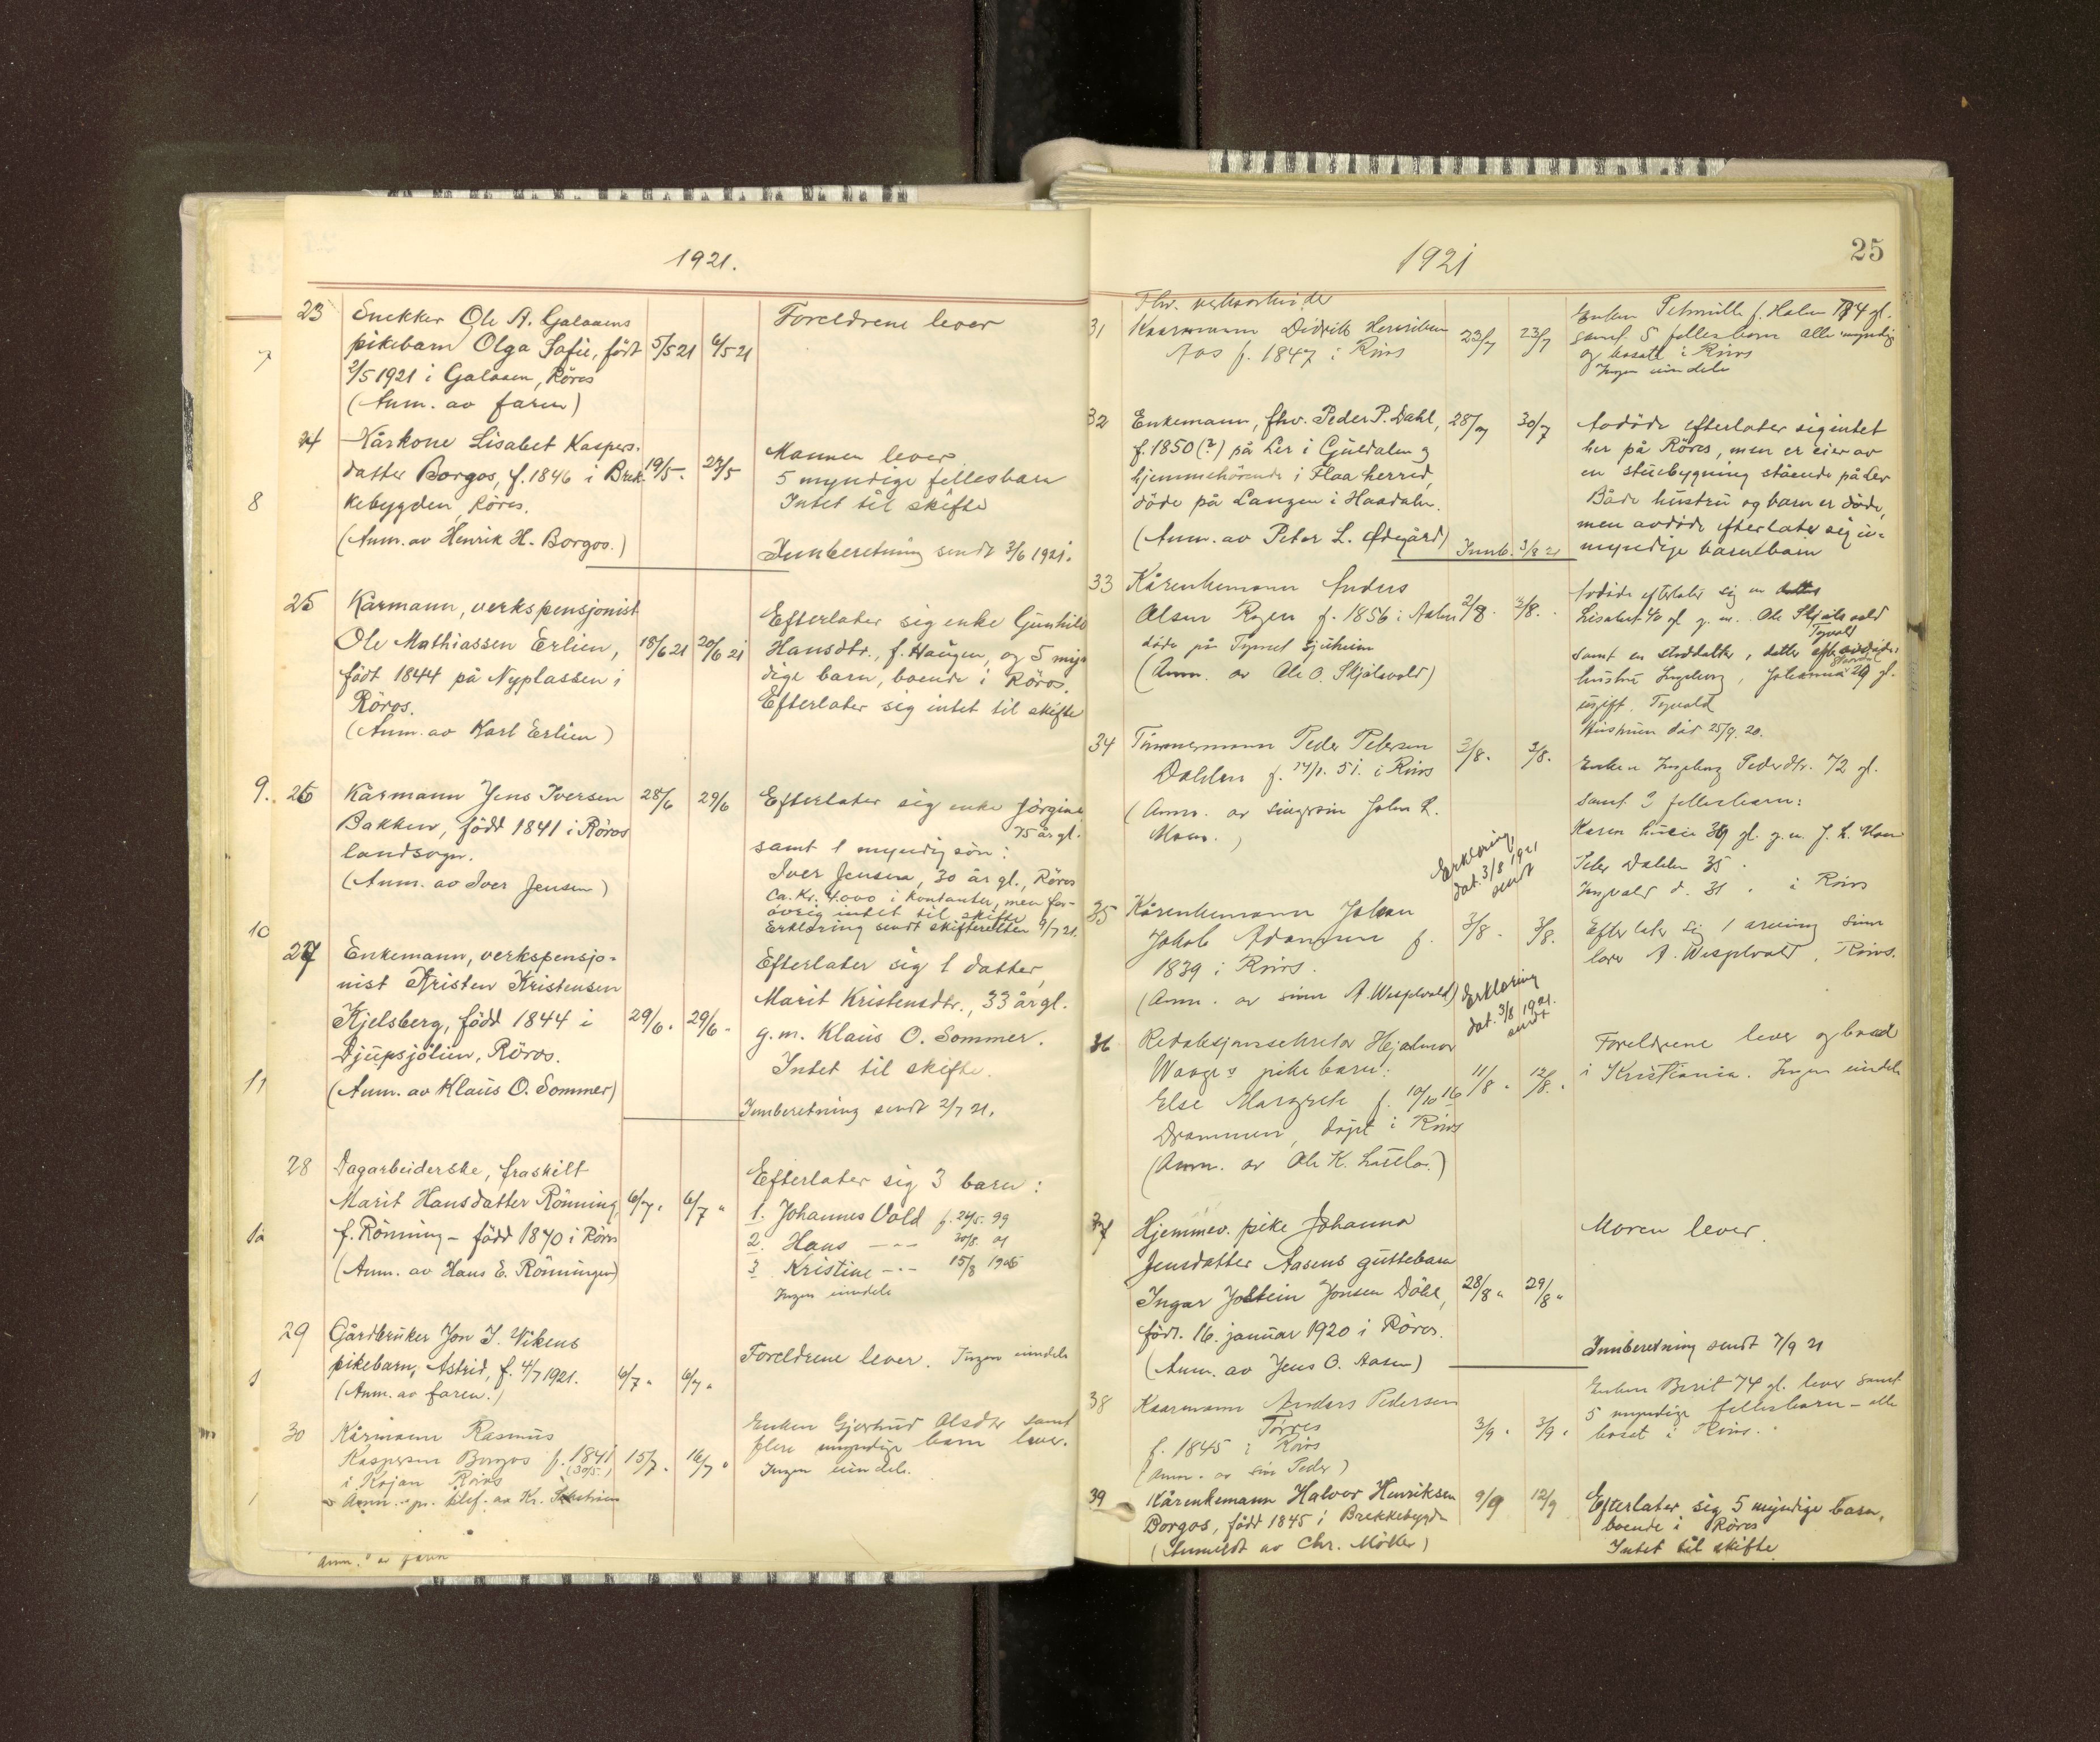 1921.
23 Snekker Ole A. Galaaens
pikebarn Olga Sofie, født 5/5 21 6/5 21 Foreldrene lever
2/5 1921 i Galaaen, Röros
(Anm. av faren)
24 Kårkone Lisabet Kaspers-
datter Borgos, f. 1846 i Brek- 19/5 - 27/5 Mannen lever
kebygden, Röros. 5 myndige fellesbarn
(Anm. av Henrik H. Borgos.) Intet til skifte
Innberetning sendt 3/6 1921.
25 Kårmann, verkspensjonist
Ole Mathiassen Erlien, 18/6 21 20/6 21 Efterlater sig enke Gunhild
født 1844 på Nyplassen i Hansdtr., f. Haugen, og 5 myn
Röros. dige barn, boende i Röros.
(Anm. av Karl Erlien) Efterlater sig intet til skifte
9. 26 Kårmann Jens Iversen 28/6 29/6 Efterlater sig enke Jörgine
Bakken, född 1841 i Röros 75 år gl.
landsogn. samt 1 myndig sön:
(Anm. av Iver Jensen) Iver Jensen, 30 år gl., Röros
Ca. Kr. 4000 i kontanter, men for-
övrig intet til skifte
Erklæring sendt skifteretten 2/7 21.
27 Enkemann, verkspensjo-
nist Kristen Kristensen Efterlater sig 1 datter,
Kjelsberg, född 1844 i 29/6 . 29/6 - Marit Kristensdtr., 33 år gl.
Djupsjölien, Röros. g. m. Klaus O. Sommer.
(Anm. av Klaus O. Sommer) Intet til skifte.
Innberetning sendt 2/7 21.
28 Dagarbeiderske, fraskilt
Marit Hansdatter Rönning, 6/7 . 6/7 " Efterlater sig 3 barn:
f. Rönning - född 1870 i Röros 1. Johannes Vold f. 24/5. 99
(Anm. av Hans E. Rönningen) 2. Hans - - - 30/8. 01
3 Kristine - - - 15/8 1906
Ingen eiendele
29 Gårdbruker Jon J. Vikens
pikebarn, Astrid, f. 4/7 1921. 6/7 " 6/7 " Foreldrene lever. Ingen eiendele
(Anm. av faren.)
30 Kårmann Rasmus
Kaspersen Borgos f. 1841 15/7 . 16/7 " Enken Gjertrud Olsdtr samt
(30/5.) flere myndige barn lever.
i Kojan Röros Ingen eiendel.
Anm. pr. telef. av Kr.
Anm. av faren
7
8
10
11
12
1921 25
Fhv. verksarbeider
31 Kaarmann Didrik Henriksen 23/7 23/7 Enken Petronille f. Holm 74 gl.
Aas f. 1847 i Röros samt 5 fellesbarn alle myndig
og bosatt i Röros
Ingen eiendele
32 Enkemann, fhv. Peder P. Dahl, 28/7 30/7 Avdöde efterlater sig intet
f. 1850 (?) på Ler i Guldalen og her på Röros, men er eier av
hjemmehörende i Flaa herred, en stuebygning stående på Ler
döde på Langen i Haadalen. Både hustru og barn er döde,
(Anm. av Peter L. Ødegård) men avdöde efterlater sig u-
Innb. 3/8 21 myndige barnebarn
33 Kårenkemann Anders
Olsen Rogen f. 1856 i Aalen 2/8 . 2/8 . Avdöde efterlater sig en datter
döde på Tynset sjukeheim Lisabet 40 gl g. m. Ole Skjölsvold
(Anm. av Ole O. Skjölsvold) Tyvold
samt en steddatter, datter efter avdödes
hustru Ingeborg, Johanna 29 gl.
ugift. Tyvold
Hustruen död 25/9. 20.
34 Tömmermann Peder Petersen 3/8. 3/8.
Dahlen f. 14/1. 51. i Röros Enken Ingeborg Pedersdtr. 72 gl.
(Anm. av svigersön John L. samt 3 fellesbarn:
Moen.) Karen Lucie 39 gl. g. m. J. L. Moen
Peter Dahlen 35 .
Ingvald d. 31 . i Röros
Erklæring
dat. 3/8 1921
sendt
35 Kårenkemann Johan
Jakob Adamsen f. 3/8 - 3/8. Efterlater sig 1 arving sönn
1839 i Röros. Röros.
(Anm. av sönn)
Erklæring
dat. 3/8 1921.
sendt
36 Redaksjonssekretær Hjalmar
Waages pikebarn: 11/8 " 12/8. " Foreldrene lever og bor
Else Margrete f. 10/10 16 i Kristiania. Ingen eiendele
Drammen, døpt i Röros
(Anm. av Ole K.)
37 Hjemmev. pike Johanna Moren lever.
Jensdatter Aasens guttebarn
Ingar Jostein Jonsen Döhl, 28/8 " 29/8 "
född. 16. januar 1920 i Röros.
(Anm. av Jens O. Aasen) Innberetning sendt 7/9 21
38 Kaarmann Anders Pedersen Enken Berit 74 gl. lever samt
Torres 3/9 " 3/9 " 5 myndige fellesbarn - alle
f. 1845 i Röros boset i Röros.
(Anm. av sön Peder)
39 Kårenkemann Halvor Henriksen 9/9 12/9 Efterlater sig 5 myndige barn,
Borgos, född 1845 i Brekkebygdn boende i Röros
(Anmeldt av Chr. Möller) Intet til skifte